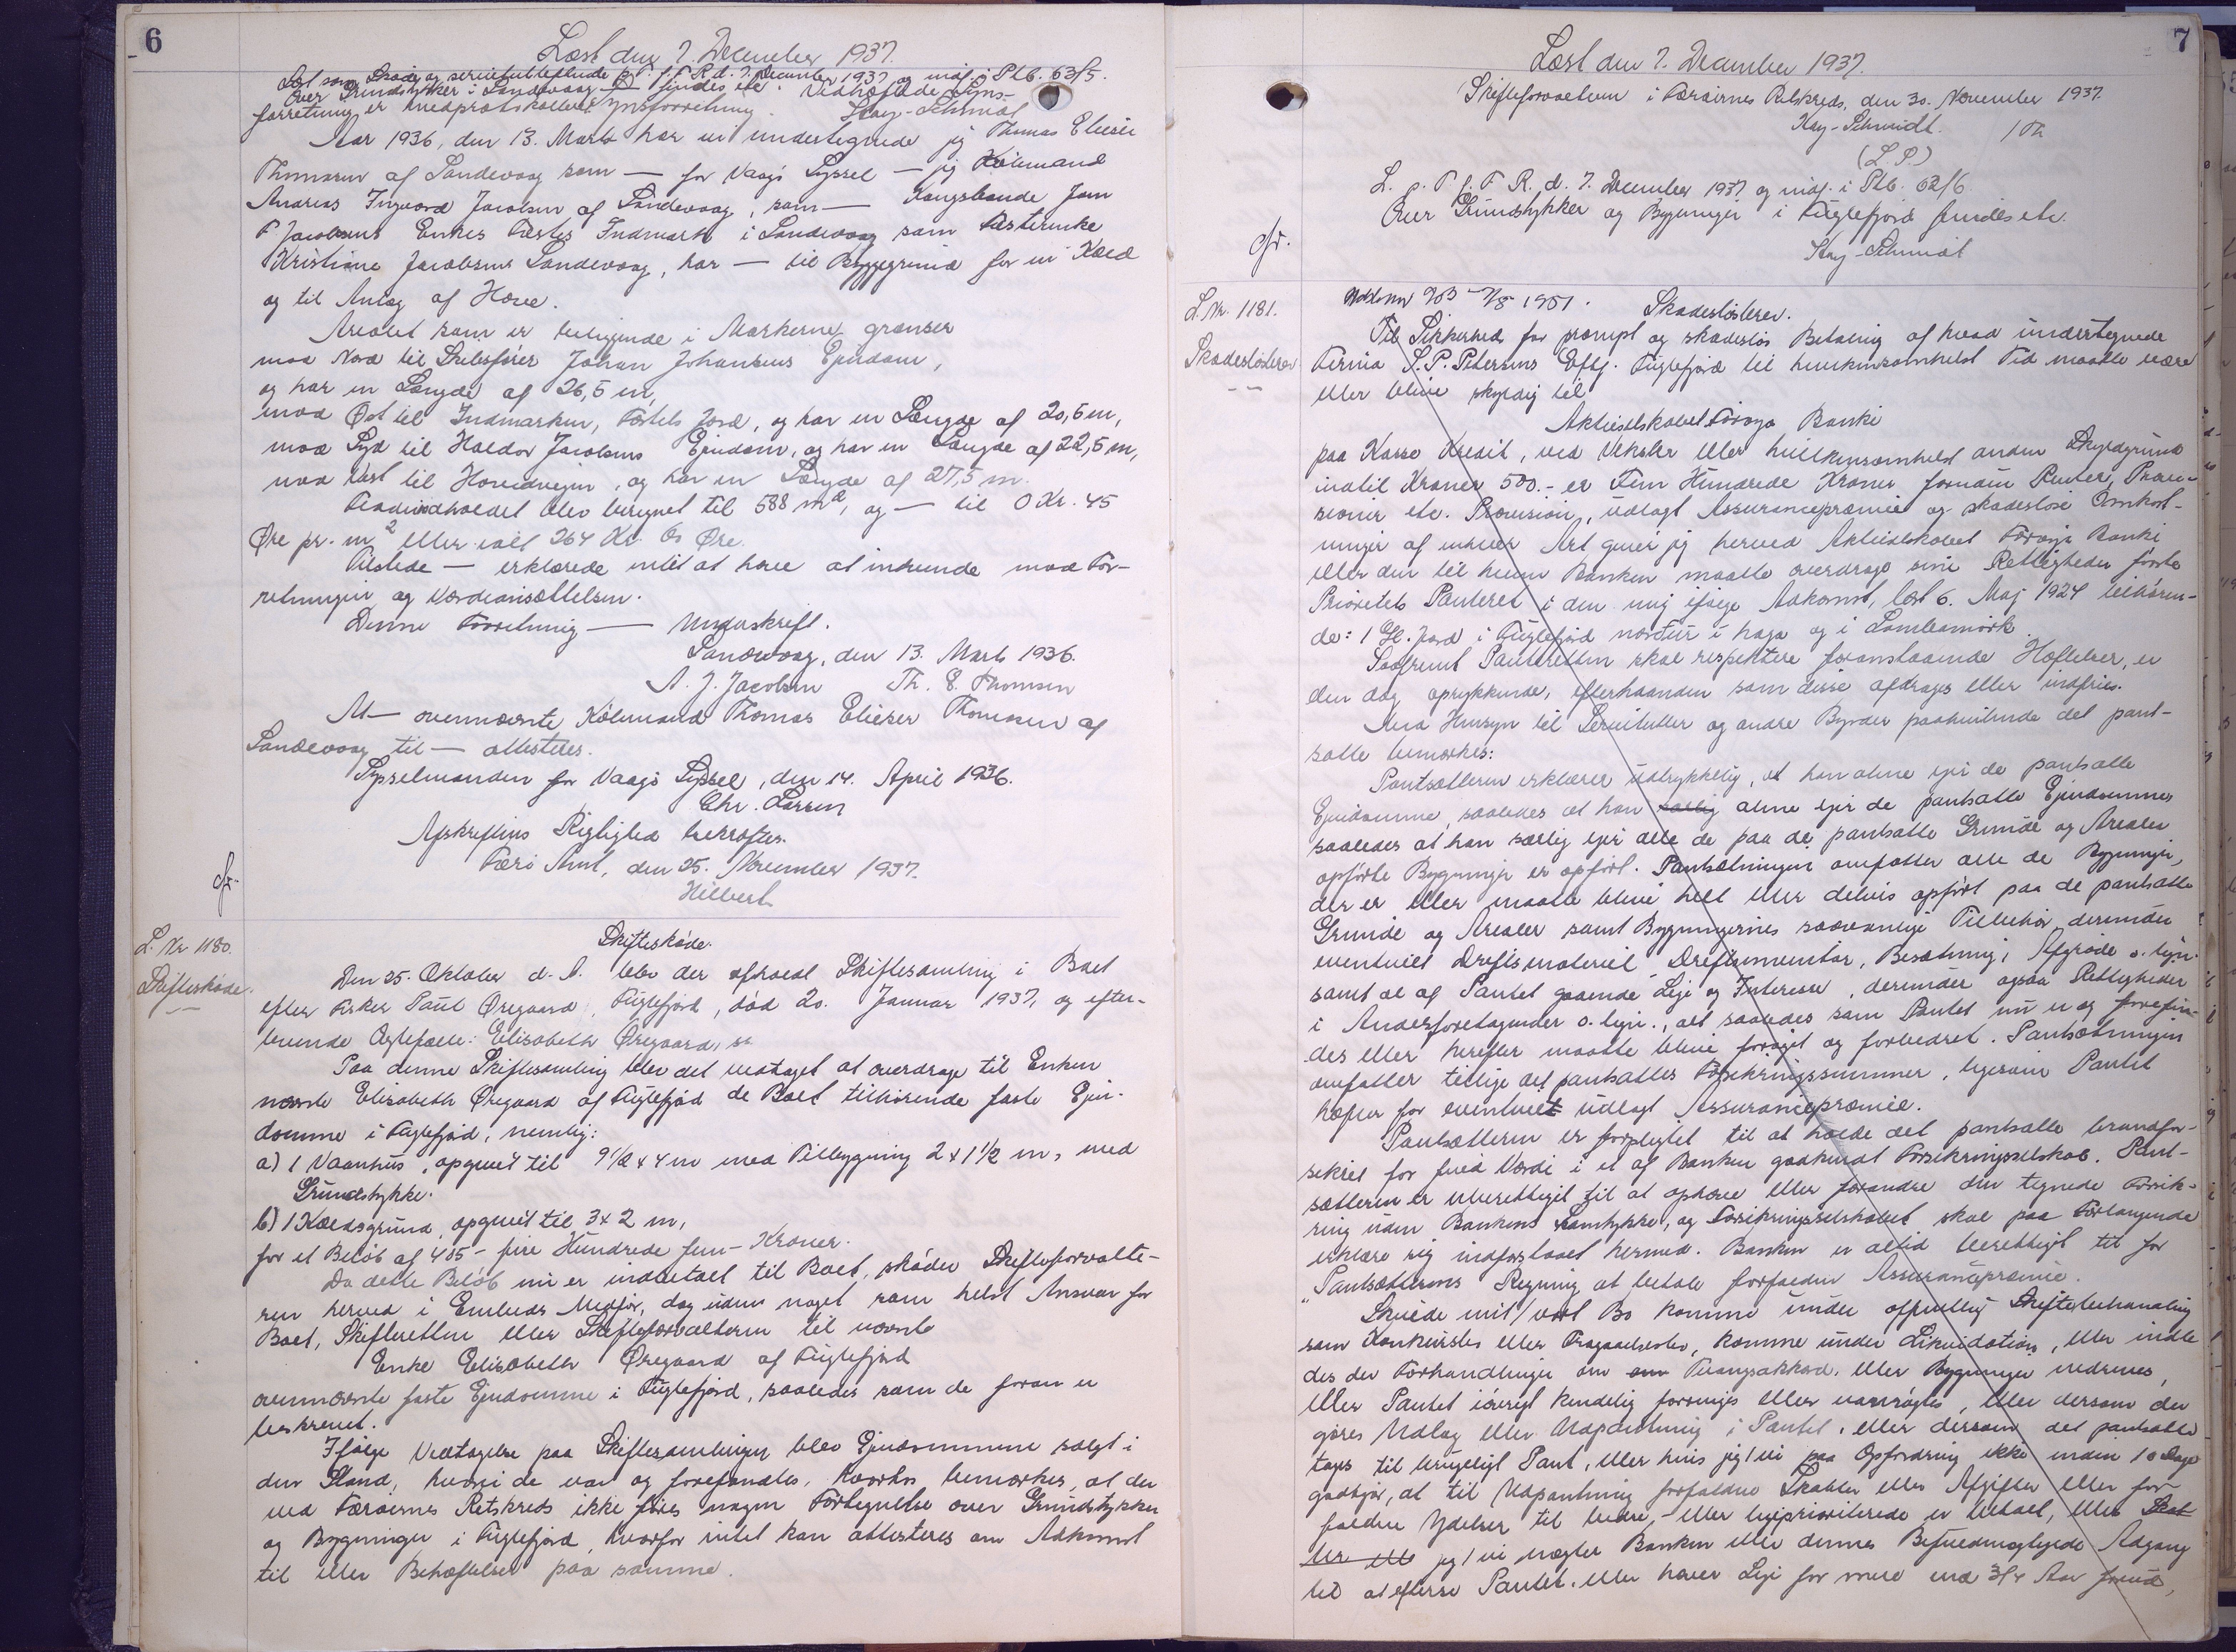 6
Læst den 7. December 1937.
Læst som Skøde og servitutstiftende p. T. f. F. R. d. 7. December 1937 og indf. i Ptb. 63/5.
Over Grundstykker i Sandevaag findes etc. Vedhæftede Syns-
forretning er medprotokolleret Synsforretning. Kay-Schmidt
Aar 1936, den 13. Marts har vi undertegnede jeg Thomas Elieser
Thomsen af Sandevaag som — for Vaagø Syssel — jeg Købmand
Andreas Ingvard Jacobsen af Sandevaag, som — Kongsbonde Joen
F. Jacobsens Enkes Fæstes Indmark i Sandevaag som Fæsterenke
Kristine Jacobsens Sandevaag, har — til Byggegrund for en Kæld
og til Anlæg af Have.
Arealet som er beliggende i Markerne grænser
mod Nord til Skibsfører Johan Johansens Ejendom,
og har en Længde af 26,5 m,
mod Øst til Indmarken, Fæstets Jord, og har en Længde af 20,5 m,
mod Syd til Haldor Jacobsens Ejendom, og har en Længde af 22,5 m,
mod Vest til Hovedvejen, og har en Længde af 27,5 m.
Fladeindholdet blev beregnet til 588 m², og — til 0 Kr. 45
Øre pr. m² eller ialt 264 Kr. 60 Øre.
Tilstede — erklærede intet at have at indvende mod For-
retningen og Værdiansættelsen.
Denne Forretning — Underskrift.
Sandevaag, den 13. Marts 1936.
A. J. Jacobsen Th. E. Thomsen
At — ovennævnte Købmand Thomas Elieser Thomsen af
Sandevaag til — attesteres.
Sysselmanden for Vaagø Syssel, den 14. April 1936.
Chr. Larsen
Afskriftens Rigtighed bekræftes.
Færø Amt, den 25. November 1937.
Hilbert
L. Nr. 1180.
Skifteskøde.
Skifteskøde.
Den 25. Oktober d. A. blev der afholdt Skiftesamling i Boet
efter Fisker Paul Øregaard, Fuglefjord, død 20. Januar 1937, og efter-
levende Ægtefælle: Elisabeth Øregaard,
Paa denne Skiftesamling blev det vedtaget at overdrage til Enken
nævnte Elisabeth Øregaard af Fuglefjord de Boet tilhørende faste Ejen-
domme i Fuglefjord, nemlig:
a) 1 Vaanhus, opgivet til 9½ x 4 m med Tilbygning 2 x 1½ m, med
Grundstykke.
b) 1 Kældsgrund, opgivet til 3 x 2 m,
for et Beløb af 405 - fire Hundrede fem - Kroner.
Da dette Beløb nu er indbetalt til Boet, skøder Skifteforvalte-
ren herved i Embeds Medfør, dog uden noget som helst Ansvar for
Boet, Skifteretten eller Skifteforvalteren til nævnte
Enke Elisabeth Øregaard af Fuglefjord
ovennævnte faste Ejendomme i Fuglefjord, saaledes som de foran er
beskrevet.
Ifølge Vedtagelse paa Skiftesamlingen blev Ejendommene solgt i
den Stand, hvori de var og forefandtes. Hvorhos bemærkes, at der
ved Færøernes Retskreds ikke føres nogen Fortegnelse over Grundstykker
og Bygninger i Fuglefjord, hvorfor intet kan attesteres om Adkomst
til eller Behæftelser paa samme.
7
Læst den 7. December 1937.
Skifteforvalteren i Færøernes Retskreds, den 30. November 1937.
Kay-Schmidt.
(L. S.)
L. p. T. f. F. R. d. 7. December 1937 og indf. i Ptb. 62/6.
Over Grundstykker og Bygninger i Fuglefjord findes etc.
Kay-Schmidt
L. Nr. 1181.
Skadesløsbrev
Skadesløsbrev.
Til Sikkerhed for prompt og skadesløs Betaling af hvad undertegnede
Firma S. P. Petersens Eftf. Fuglefjord til hvilkensomhelst Tid maatte være
eller blive skyldig til
Aktieselskabet Føroya Banki
paa Kasse Kredit, ved Veksler eller hvilkensomhelst anden Skyldgrund
indtil Kroner 500.- er Fem Hundrede Kroner foruden Renter, Provi-
sioner etc. Provision, udlagt Assurancepræmie og skadesløse Omkost-
ninger af enhver Art giver jeg herved Aktieselskabet Føroya Banki
eller den til hvem Banken maatte overdrage sine Rettigheder første
Prioritets Panteret i den mig ifølge Adkomst, læst 6. Maj 1924 tilhøren-
de: 1 Gl. Jord i Fuglefjord nordur i haga og i Lambamørk.
Saafremt Panteretten skal respektere foranstaaende Hæftelser, er
den dog oprykkende, efterhaanden som disse afdrages eller indfries.
Med Hensyn til Servitutter og andre Byrder paahvilende det pant-
satte bemærkes:
Pantsætteren erklærer udtrykkelig, at han alene ejer de pantsatte
Ejendomme, saaledes at han særlig alene ejer de pantsatte Ejendomme
saaledes at han særlig ejer alle de paa de pantsatte Grunde og Arealer
opførte Bygninger er opført. Pantsætningen omfatter alle de Bygninger,
der er eller maatte blive helt eller delvis opført paa de pantsatte
Grunde og Arealer samt Bygningernes sædvanlige Tilbehør, derunder
eventuelt Driftsmateriel, Driftsinventar, Besætning, Afgrøde o. lign.
samt de af Pantet gaaende Leje og Interesse, derunder ogsaa Rettigheder
i Andelsforetagender o. lign., alt saaledes som Pantet nu er og forefin-
des eller herefter maatte blive forøget og forbedret. Pantsætningen
omfatter tillige det pantsattes Forsikringssummer, ligesom Pantet
hæfter for eventuelt udlagt Assurancepræmie.
Pantsætteren er forpligtet til at holde det pantsatte brandfor-
sikret for fuld Værdi i et af Banken godkendt Forsikringsselskab. Pant-
sætteren er uberettiget til at ophæve eller forandre den tegnede Forsik-
ring uden Bankens Samtykke, og Forsikringsselskabet skal paa Forlangende
erklære sig indforstaaet hermed. Banken er altid berettiget til for
Pantsætterens Regning at betale forfalden Assurancepræmie.
Skulde mit/vort Bo komme under offentlig Skiftebehandling
som Konkursbo eller Fragaaelsesbo, komme under Likvidation, eller indle
des der Forhandlinger om om Tvangsakkord, eller Bygninger nedrives,
eller Pantet iøvrigt kendelig forringes eller vanrøgtes, eller dersom der
gøres Udlæg eller Udpantning i Pantet, eller dersom det pantsatte
tages til brugeligt Pant, eller hvis jeg/vi paa Opfordring ikke inden 10 Dage
godtgør, at til Udpantning forfaldne Skatter eller Afgifter eller for-
faldne Ydelser til bedre- eller ligeprioriterede er betalt, eller Skat
ter eller jeg/vi nægter Banken eller dennes Befuldmægtigede Adgang
til at efterse Pantet, eller hæver Leje for mere end 3/4 Aar forud,